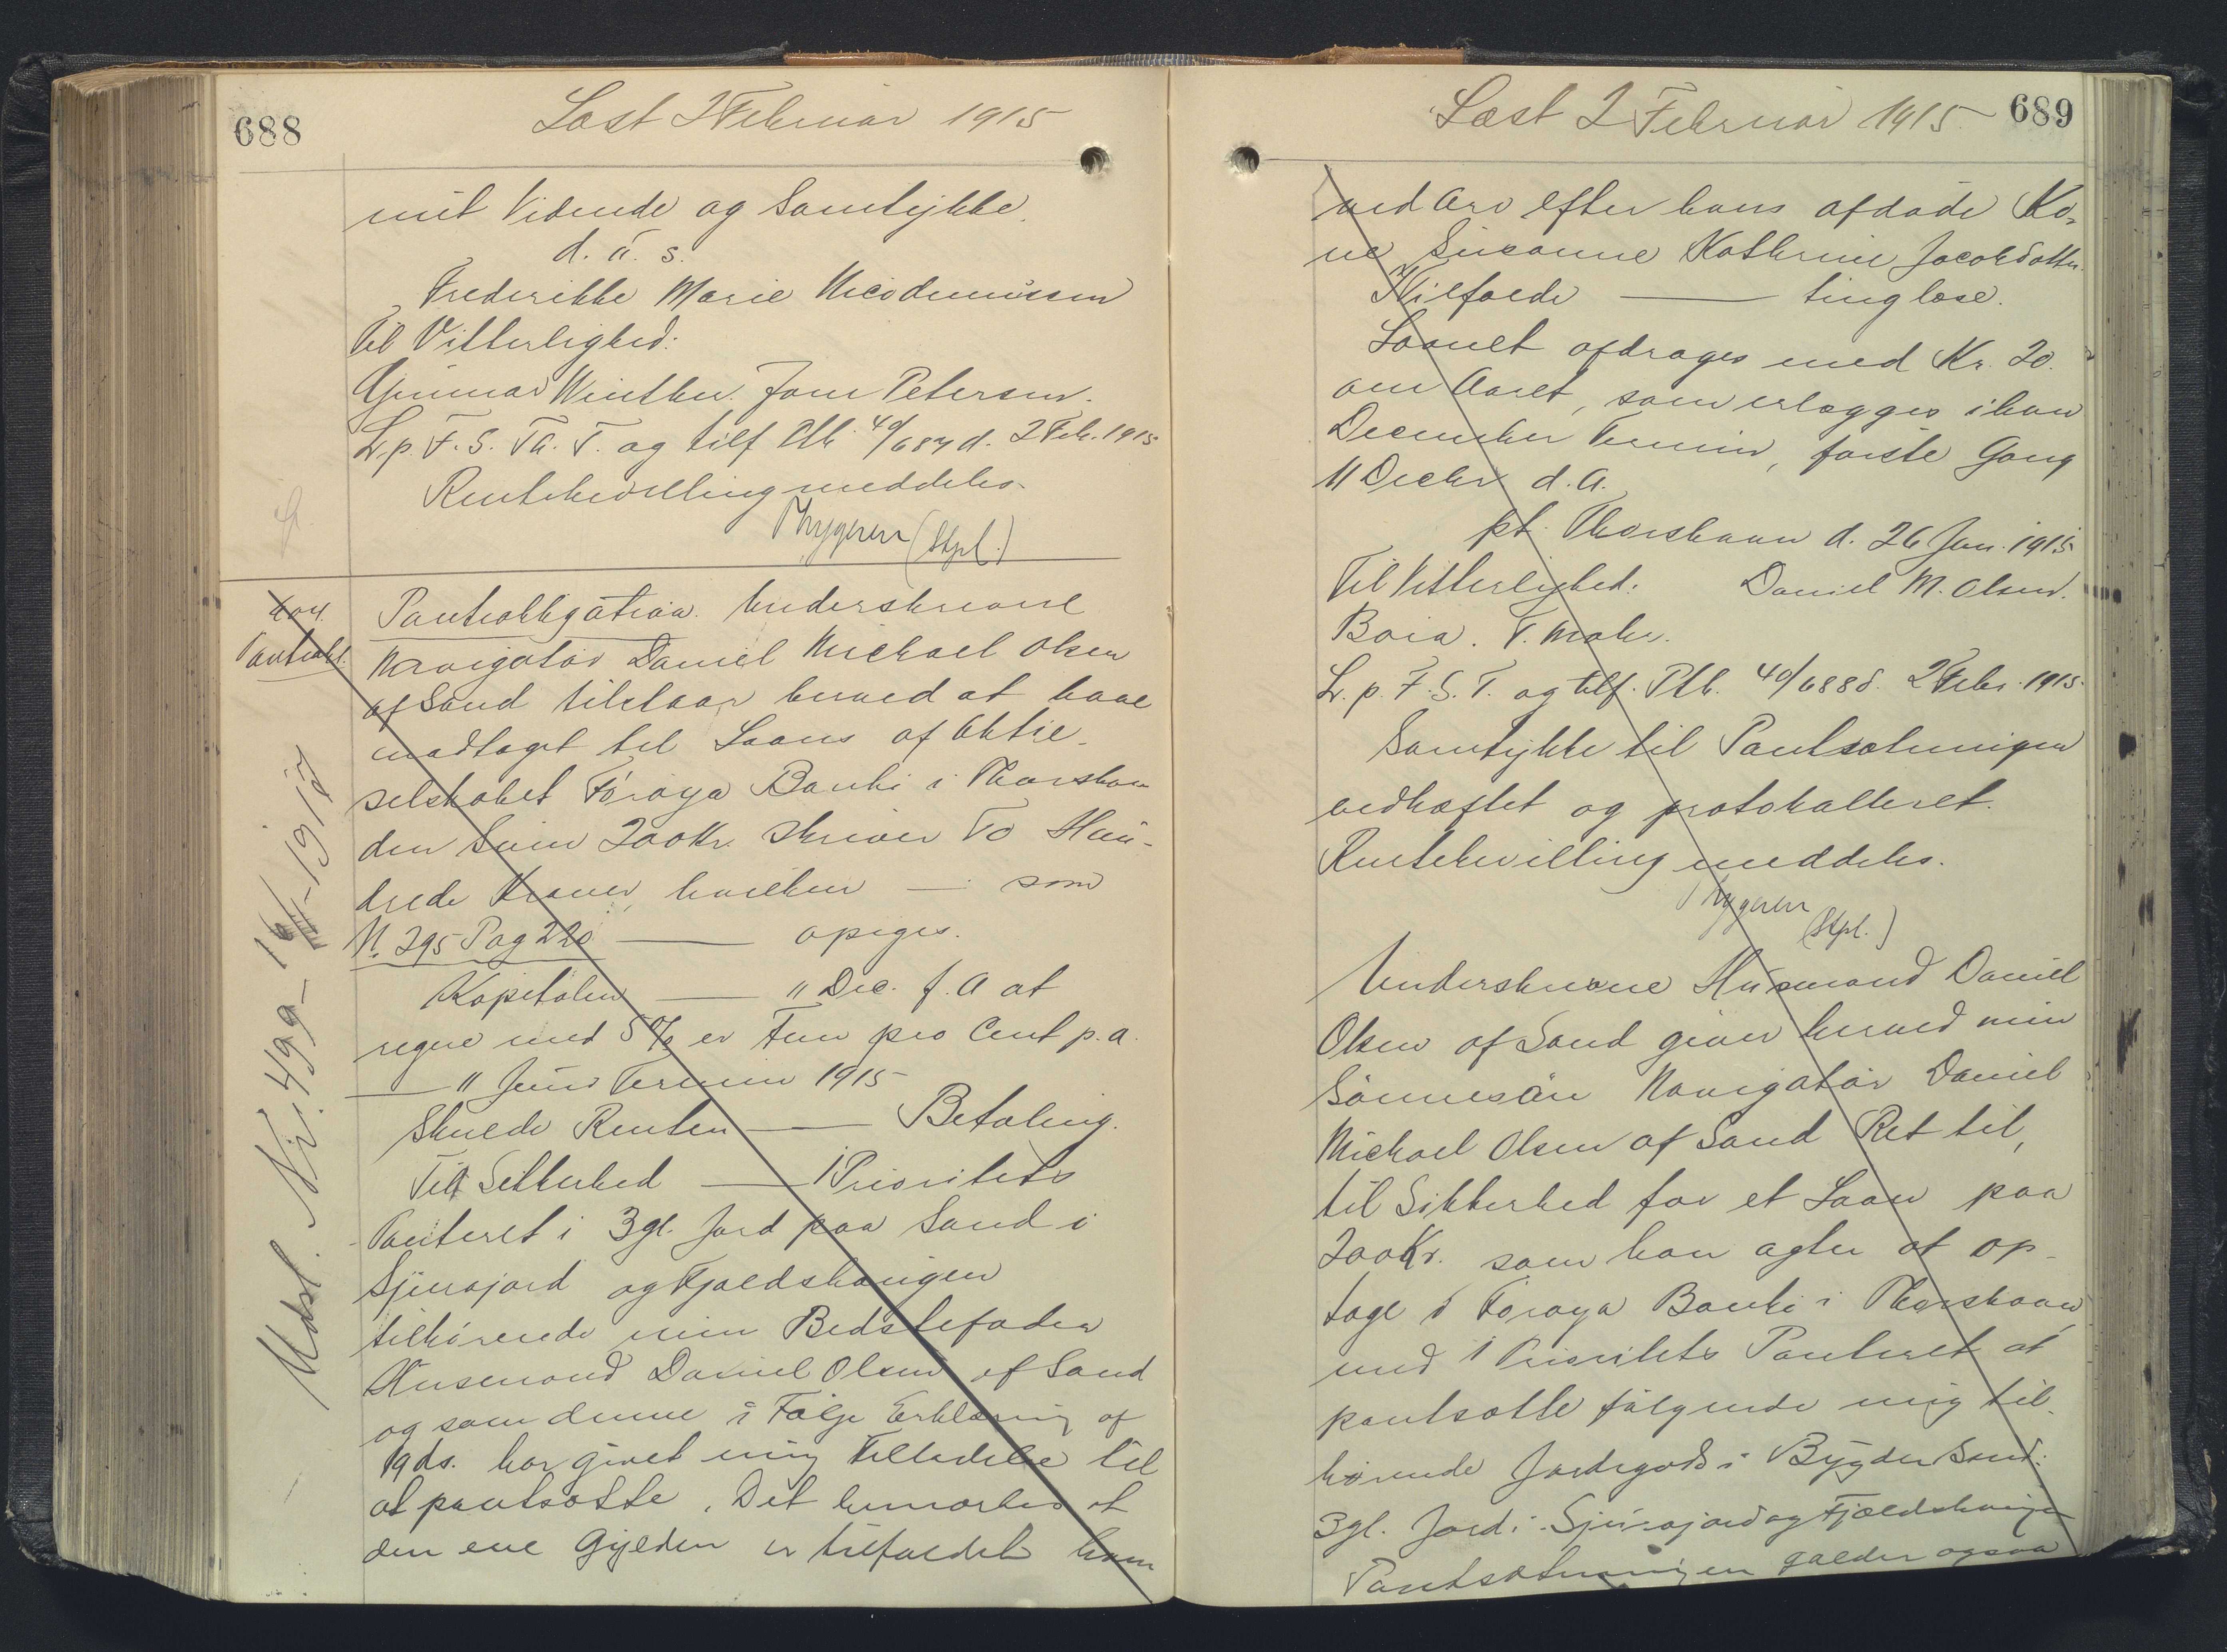 688
Læst 2 Februar 1915
mit Vidende og Samtykke.
d. u. s.
Frederikke Marie Nicodemussen
Til Vitterlighed:
Gunnar Winther. Jens Petersen.
L. p. F. S. Th. T. og tilf Ptb. 40/687 d. 2 Feb. 1915
Rentebevilling meddeles.
Thygesen (Stpl.)
404.
Pantobl.
Pantobligation. Underskrevne
Navigatør Daniel Michael Olsen
af Sand tilstaar herved at have
modtaget til Laans af Aktie-
selskabet Føroya Banki i Thorshavn
den Sum 200 Kr. skriver To Hun-
drede Kroner, hvilken — som
N. 295 Pag 220 — opsiges.
Kapitalen — 11 Dec. f. A at
regne med 5% er Fem pro Cent p. a.
— 11 Juni Termin 1915
Skulde Renten — Betaling.
Til Sikkerhed — 1 Prioritets
Panteret i 3 gl. Jord paa Sand i
Sjurajord og Fjældshaugen
tilhørende min Bedstefader
Husmand Daniel Olsen af Sand
og som denne i Følge Erklæring af
19 ds. har givet mig Tilladelse til
at pantsætte. Det bemærkes at
den ene Gylden er tilfaldet ham
Udsl. Nr. 499 - 16/VIII - 1917
689
Læst 2 Februar 1915
ved Arv efter hans afdøde Ko-
ne Susanne Kathrine Jacobsdatter.
Tilfælde — tinglæse.
Laanet afdrages med Kr. 20.
om Aaret, som erlægges i hver
December Termin, første Gang
11 Decbr d. A.
pt. Thorshavn d. 26 Jan. 1915
Til Vitterlighed: Daniel M. Olsen.
Boia. T. Mohr.
L. p. F. S. T. og tilf. Ptb. 40/688 d. 2 Febr. 1915.
Samtykke til Pantsætningen
vedhæftet og protokolleret.
Rentebevilling meddeles.
Thygesen
(Stpl.)
Underskrevne Husmand Daniel
Olsen af Sand giver herved min
Sønnesøn Navigatør Daniel
Michael Olsen af Sand Ret til,
til Sikkerhed for et Laan paa
200 Kr. som han agter at op-
tage i Føroya Banki i Thorshavn,
med 1 Prioritets Panteret at
pantsætte følgende mig til-
hørende Jordegods i Bygden Sand:
3 gl. Jord i Sjurajord og Fjældshaugen
Pantsætningen gælder ogsaa